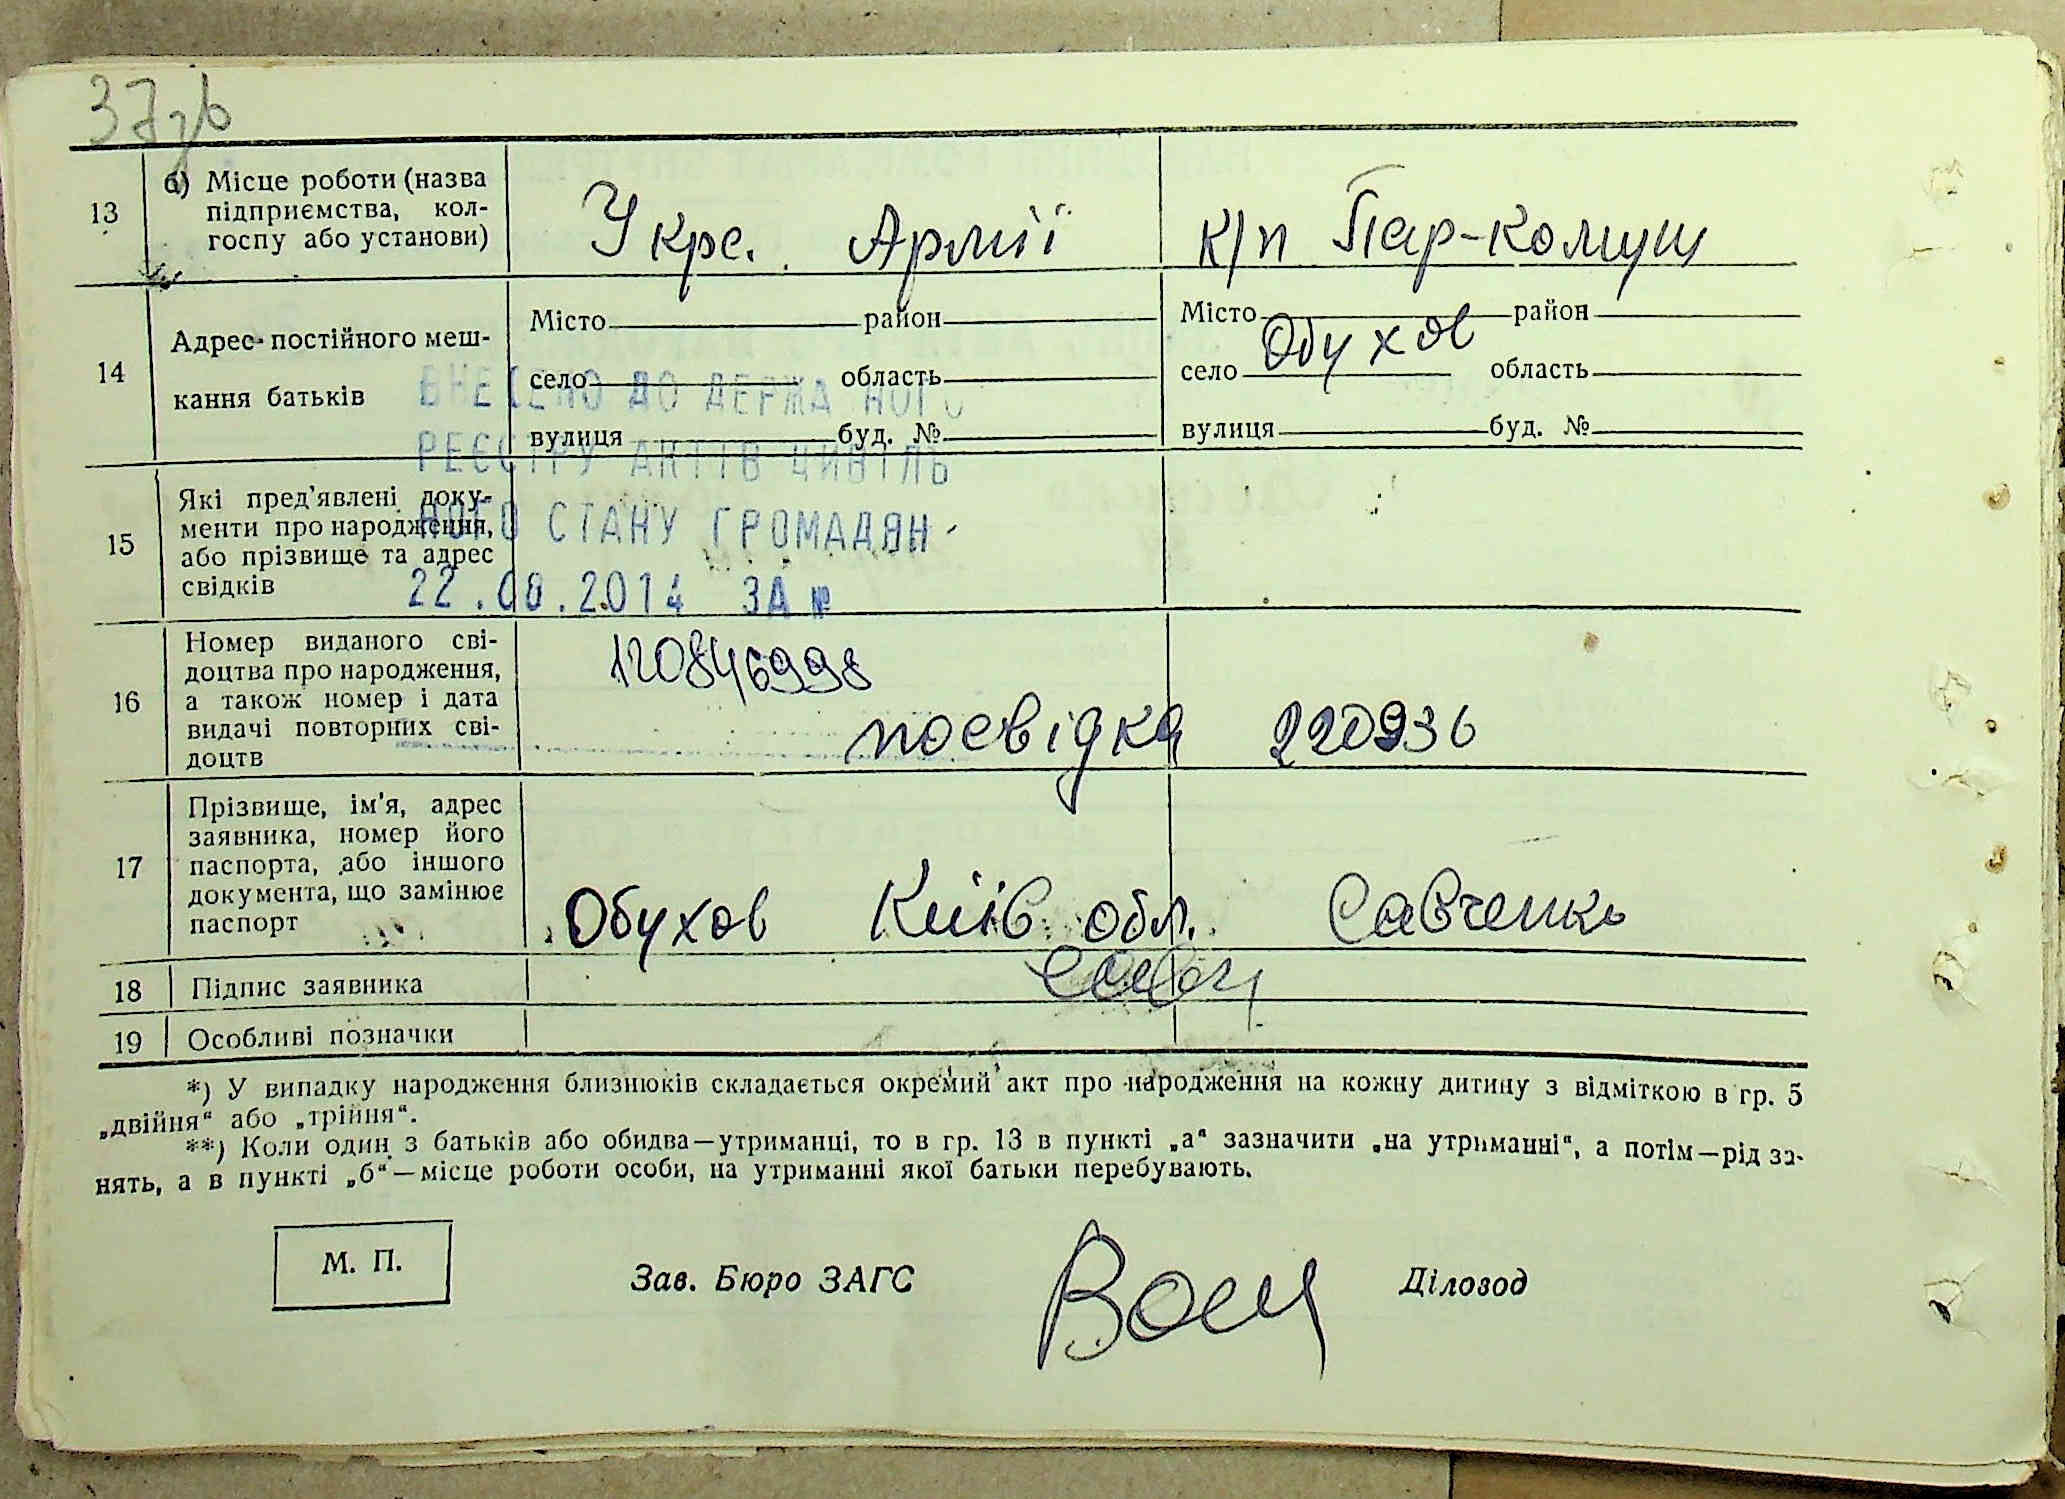 37зв
13
б) Місце роботи (назва
підприємства, кол-
госпу або установи)
У крс. Армії
к/п Пар-Комун
14
Адрес постійного меш-
кання батьків
Місто район
село область
вулиця буд. №
Місто район
село Обухов область
вулиця буд. №
ВНЕСЕНО ДО ДЕРЖА НОГО
РЕЄСТРУ АКТІВ ЦИВІЛЬ
НОГО СТАНУ ГРОМАДЯН
22.08.2014 ЗА №
15
Які пред'явлені доку-
менти про народження,
або прізвище та адрес
свідків
16
Номер виданого сві-
доцтва про народження,
а також номер і дата
видачі повторних сві-
доцтв
120846998
посвідка 220936
17
Прізвище, ім'я, адрес
заявника, номер його
паспорта, або іншого
документа, що замінює
паспорт
Обухов Київ обл. Савченко
18 Підпис заявника
Савч
19 Особливі позначки
*) У випадку народження близнюків складається окремий акт про народження на кожну дитину з відміткою в гр. 5
„двійня“ або „трійня“.
**) Коли один з батьків або обидва—утриманці, то в гр. 13 в пункті „а“ зазначити „на утриманні“, а потім—рід за-
нять, а в пункті „б“—місце роботи особи, на утриманні якої батьки перебувають.
М. П.
Зав. Бюро ЗАГС
Діловод